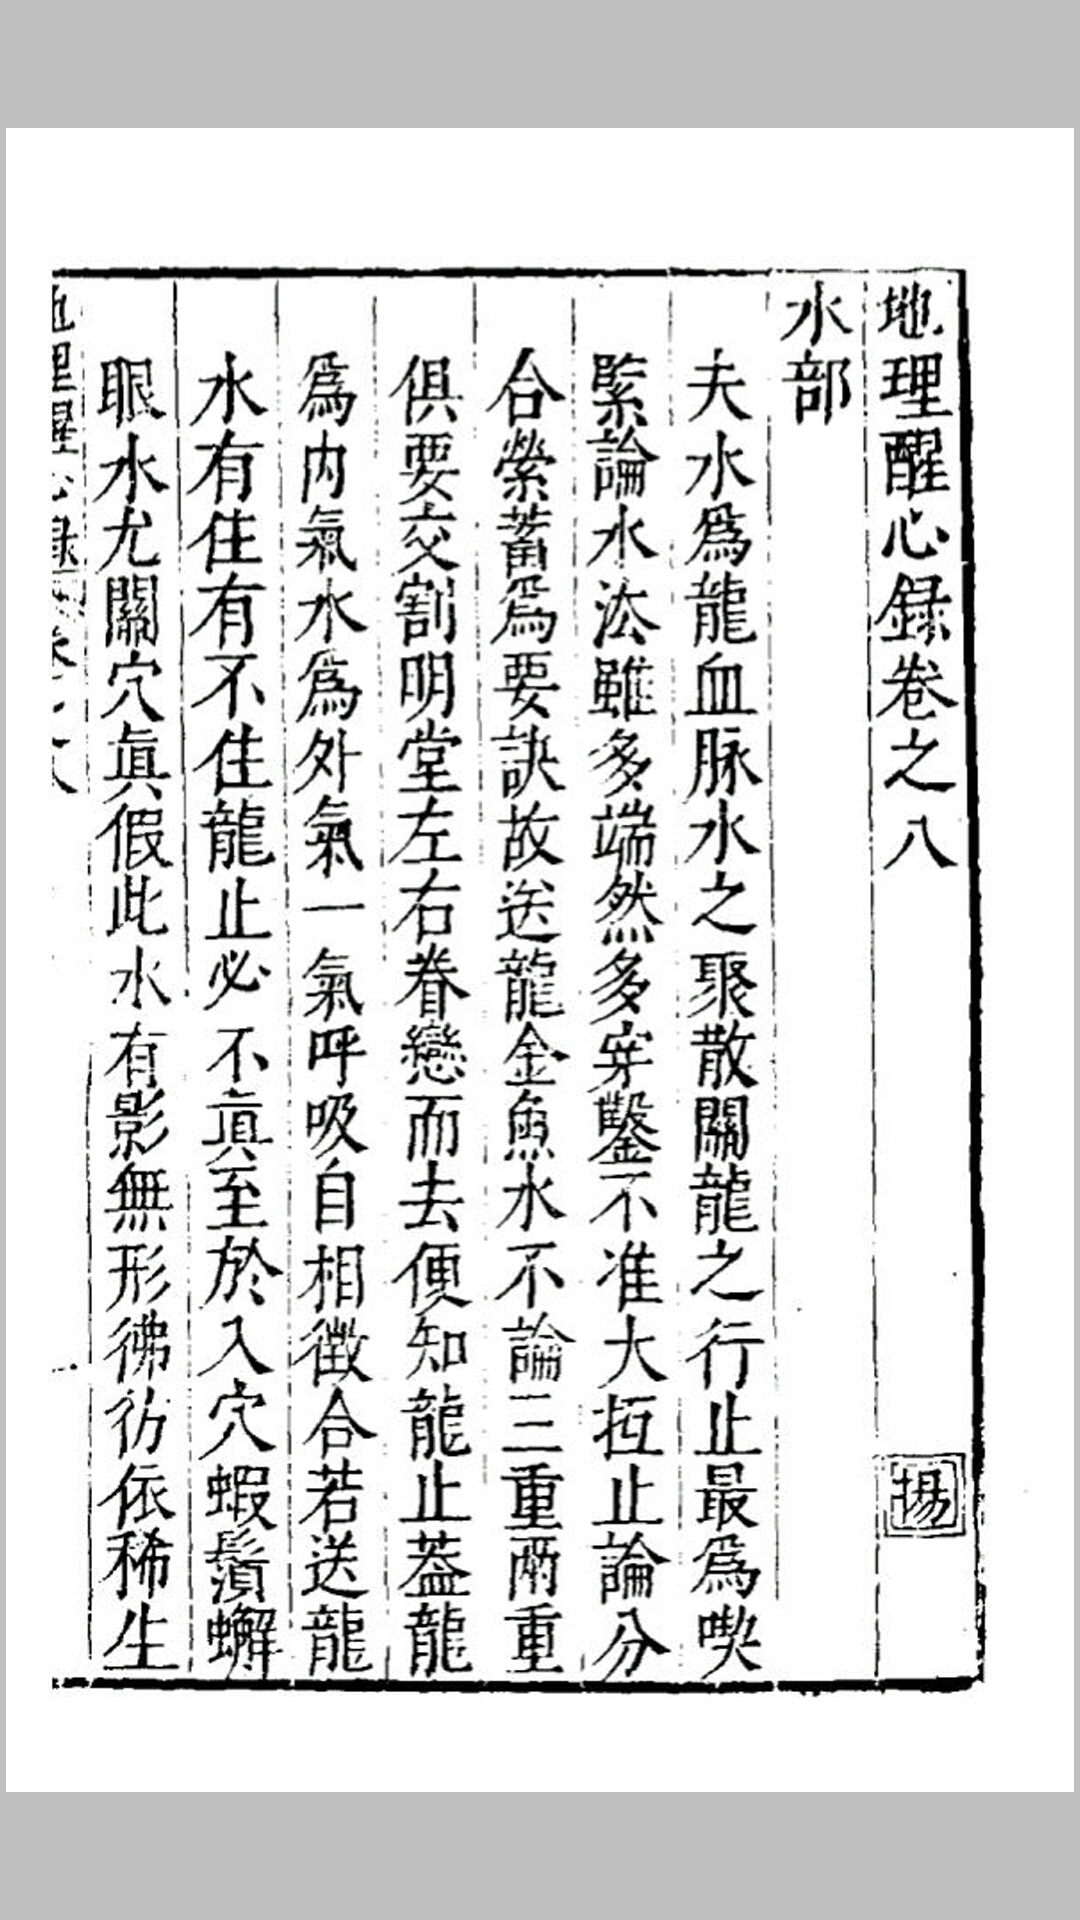 地理醒心録卷之八
揚
水部
夫水爲龍血脉水之聚散關龍之行止最爲喫
緊論水法雖多端然多穿鑿不准大抵止論分
合縈蓄爲要訣故送龍金魚水不論三重兩重
俱要交割明堂左右眷戀而去便知龍止葢龍
爲内氣水爲外氣一氣呼吸自相徵合若送龍
水有住有不住龍止必不眞至於入穴蝦鬚蠏
眼水尤關穴眞假此水有影無形彿彷依稀生